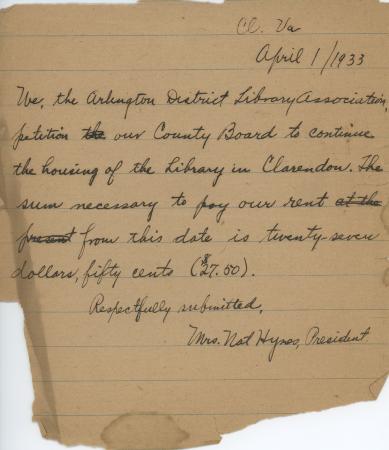 Cl. Va
April 1/1933
We, the Arlington District Library Association,
petition the our County Board to continue
the housing of the Library in Clarendon. The
sum necessary to pay our rent at the
present from this date is twenty-seven
dollars, fifty cents ($27.50).
Respectfully submitted,
Mrs. Nat Hynes, President